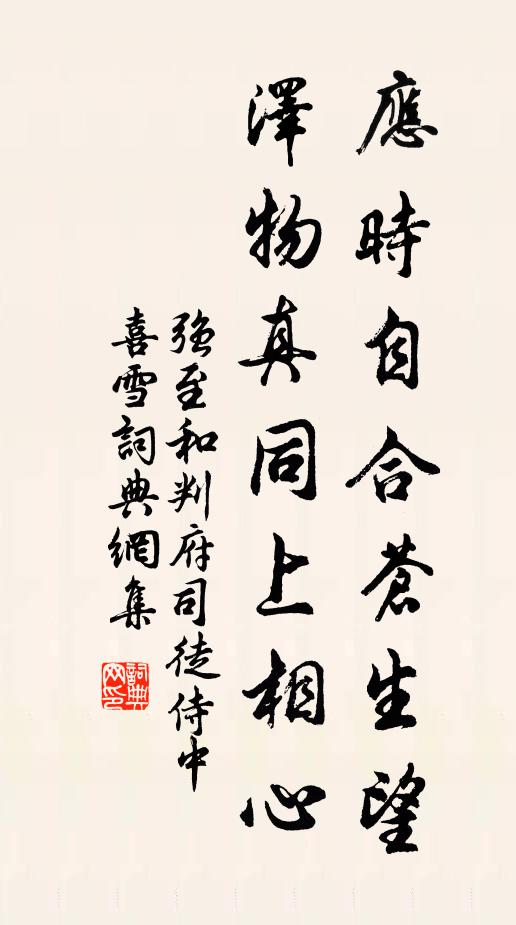 應時自合蒼生望
澤物真同上相心
強至和判府司徒侍中
喜雪詞典網集
詞典網印